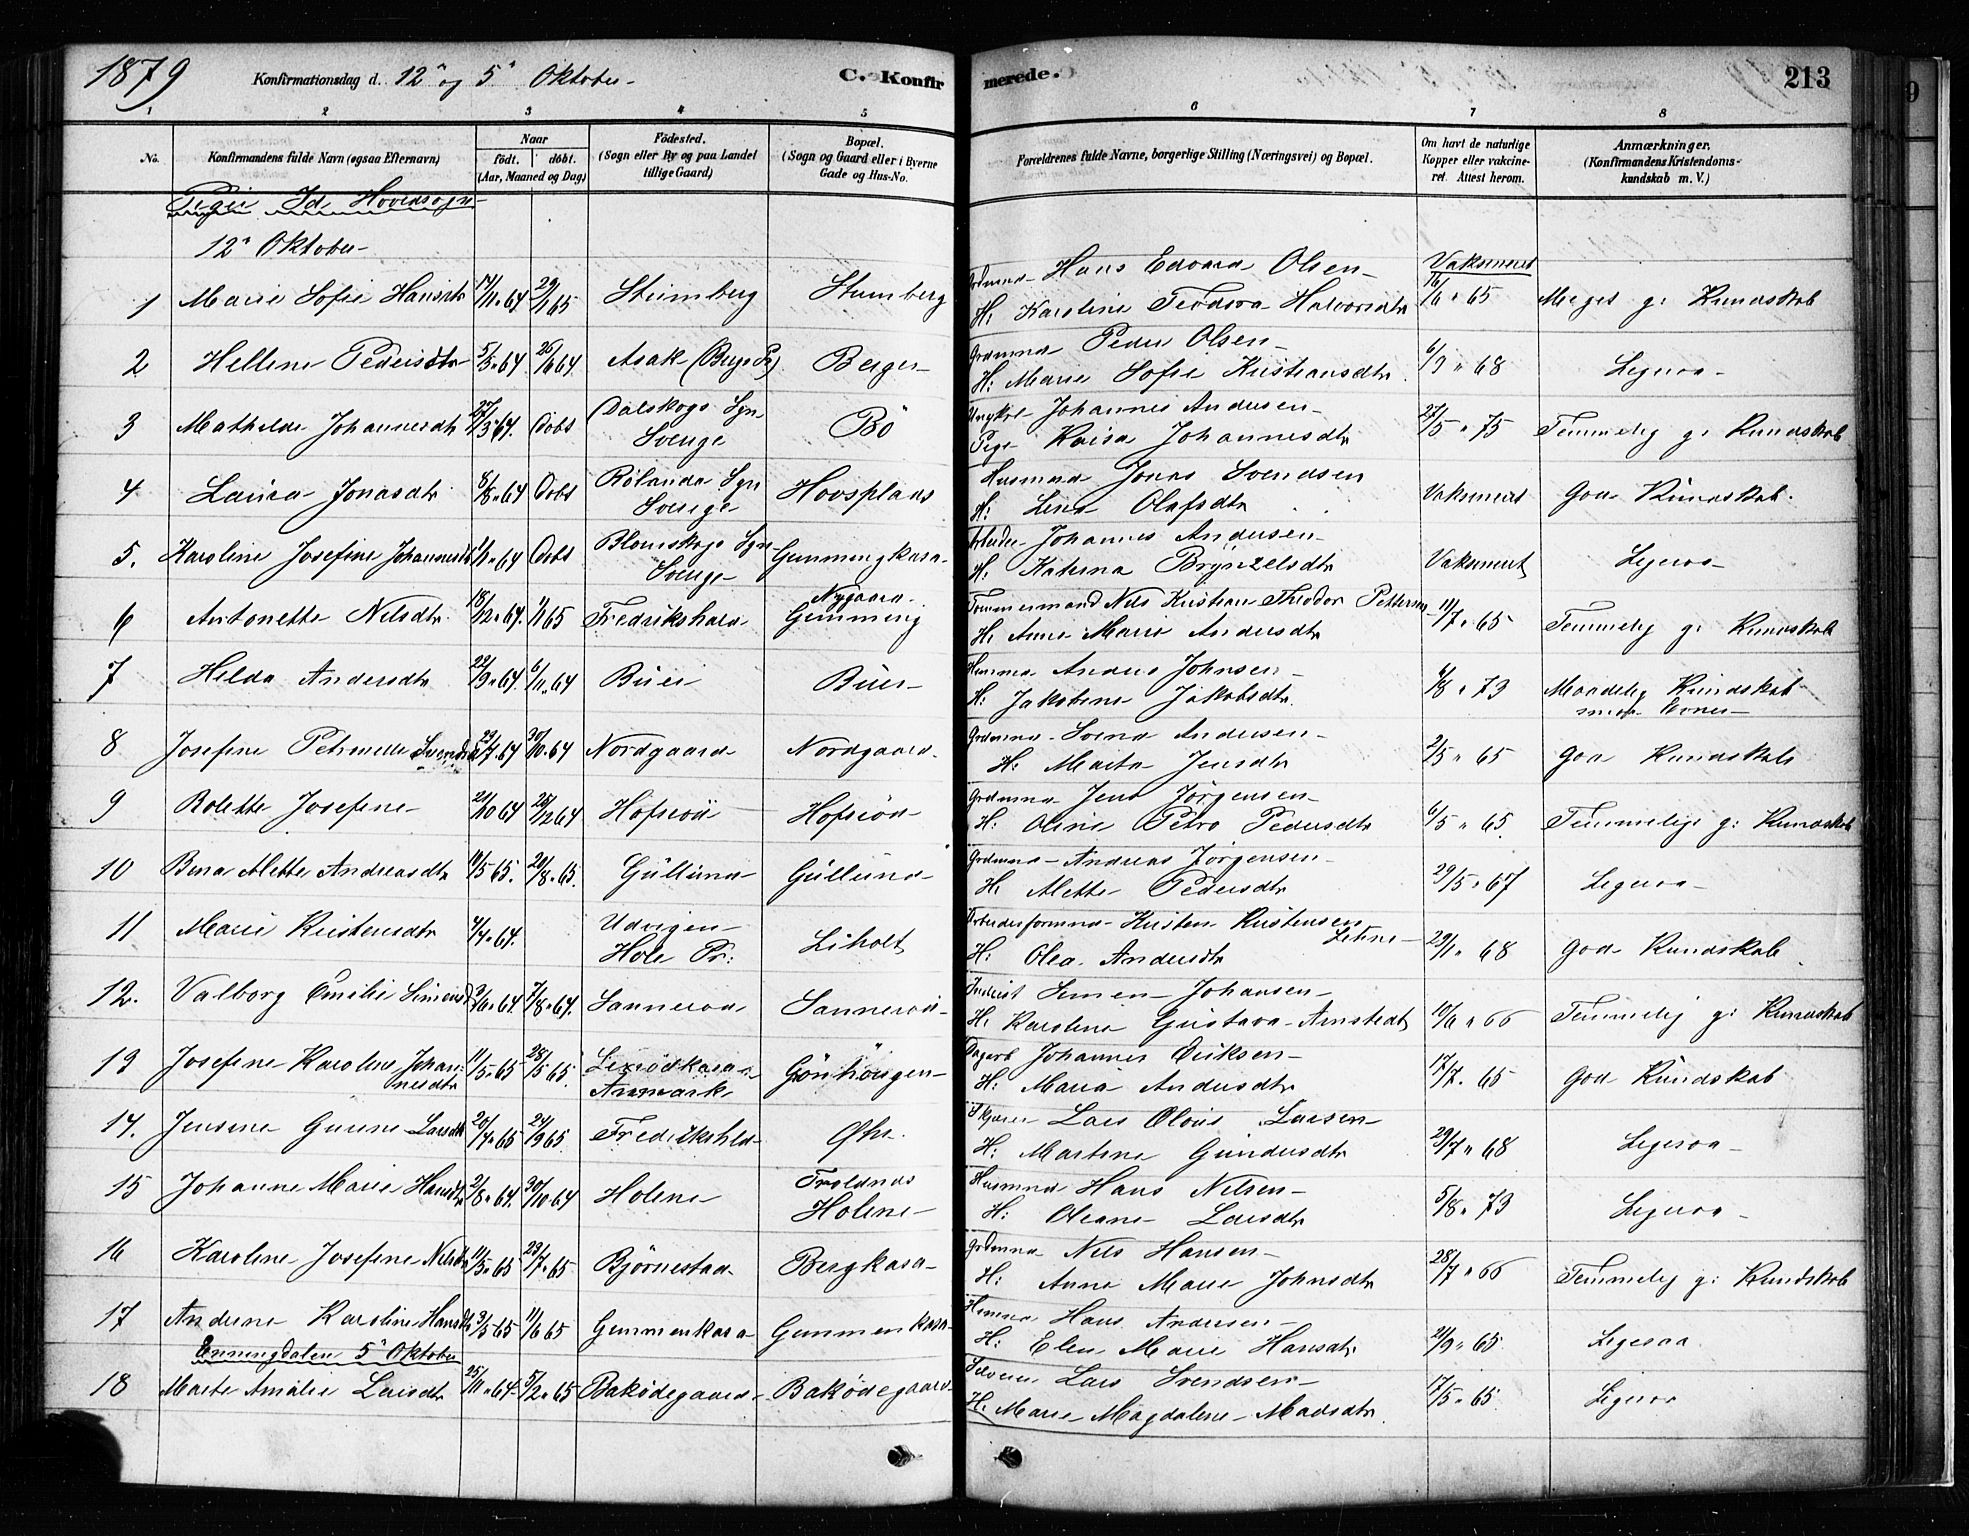 1879 Konfirmationsdag d. 12" og 5" Oktober C. Konfirmerede. 213
1 2 3 4 5 6 7 8
No. Konfirmandens fulde Navn (ogsaa Efternavn) Naar født. døbt. (Aar, Maaned og Dag) Fødested. (Sogn eller By og paa Landet tillige Gaard) Bopæl. (Sogn og Gaard eller i Byerne Gade og Hus-No. Forældrenes fulde Navne, borgerlige Stilling (Næringsvei) og Bopæl. Om havt de naturlige Kopper eller vakcineret. Attest herom. Anmærkninger. (Konfirmandens Kristendomskundskab m. V.)
Piger Id Hovedsogn
12" Oktober
Hans Edvard Olsen Vaksineret
1 Marie Sofie Hansdtr 29/1 65 H: Karoline Teodora Halvorsdtr 16/6 65 Meget g: Kundskab
Grdmand Peder Olsen
2 Hellene Pedersdtr 5/3 64 Asak (Bergs Pr) Berger H: Marie Sofie Kristiansdtr 6/9 68 Ligesaa
3 Mathilde Johannesdtr 27/3 64. Døbt Dalskogs Sgn Sverige Bø Ungkrl Johannes Andersen
Pige Kaisa Johannesdtr 27/5 75 Temmelig g: Kundskab
Husmand Jonas Svendsen
4 Laura Jonasdtr 8/8 64 Døbt Rölanda Sgn Sverige Hovsplads H: Lena Olafsdtr Vaksineret God Kundskab.
Arbeider Johannes Andersen
5. Karoline Josefine Johannesdtr Døbt Blomskogs Sgn Sverige H: Katrina Brynzelsdtr Vaksineret Ligesaa
6 Antonette Nilsdtr 18/12 64. 1/1 65 Fredrikshald Nygaard Gimming Tømmermand Nils Kristian Theodor Pettersen
H: Anne Marie Andersdtr 11/7 65 Temmelig g: Kundskab
7 Hilda Andersdtr 22/9 64. 6/11 64 Buer Buer Anders Johnsen
H: Jakobine Jakobsdtr. 6/8 73 Maadelig Kundskab
smaa Evner
8 Josefine Petronelle Svendsdtr 30/10 64 Nordgaard Nordgaard Grdmand Svend Andersen
H: Marta Jensdtr 2/5 65 God Kundskab
9 Rolette Josefine 21/10 64 26/12 64 Hofsrød Hofsrød Grdmand Jens Jørgensen
H: Oline Petra Pedersdtr 6/5 65. Temmelig g: Kundskab
10 Bina Alette Andreasdtr 19/5 65. 20/8 65. Güllund Güllund Grdmand Andreas Jørgensen
H: Alette Pedersdtr 29/5 67 Ligesaa
11 Marie Kristensdtr 4/4 64. Udvigen Hole Pr: Liholt Arbeidsformand Kristen Kristensen
H: Olea Andersdtr 29/1 68 God Kundskab
12. Valborg Emilie Simensdtr 3/6 64 7/8 64. Sannerød Sannerød Inderst Simen Johansen
H: Karoline Gustava Arnstedtr 10/6 66 Temmelig g: Kundskab
13 Josefine Karoline Johannesdtr 11/5 65 28/5 65. Lerødkasa Anmark Gønhøugen Dagarb Johannes Eriksen
H: Maria Andersdtr 17/7 65 God Kundskab
14. Jensine Gurine Larsdtr 20/4 65 24/9 65. Fredrikshld Øhr. Lars Olaus Larsen
H: Martine Gundersdtr 29/7 68 Ligesaa
15 Johanne Marie Hansdtr 2/8 64. 30/10 64 Holene Holene Husmnd Hans Nilsen
H: Oleane Larsdtr 5/8 73 Ligesaa
16 Karoline Josefine Nilsdtr 11/5 65 23/7 65 Bjørnestad Bergkasa Grdmnd Nils Hansen
H: Anne Marie Johnsdtr 28/7 66 Temmelig g: Kundskab
17 Andrine Karoline Hansdtr 3/5 65 11/6 65 Gimmenkasa Gimmenkasa Hans Andersen
H: Elen Marie Hansdtr 2/9 65 Ligesaa
Enningdalen 5" Oktober
18 Marte Amalie Larsdtr 25/11 64 5/2 65 Bakødegaard Bakødegaard Selveier Lars Svendsen
H: Marie Magdalene Madsdtr. 17/5 65. Ligesaa